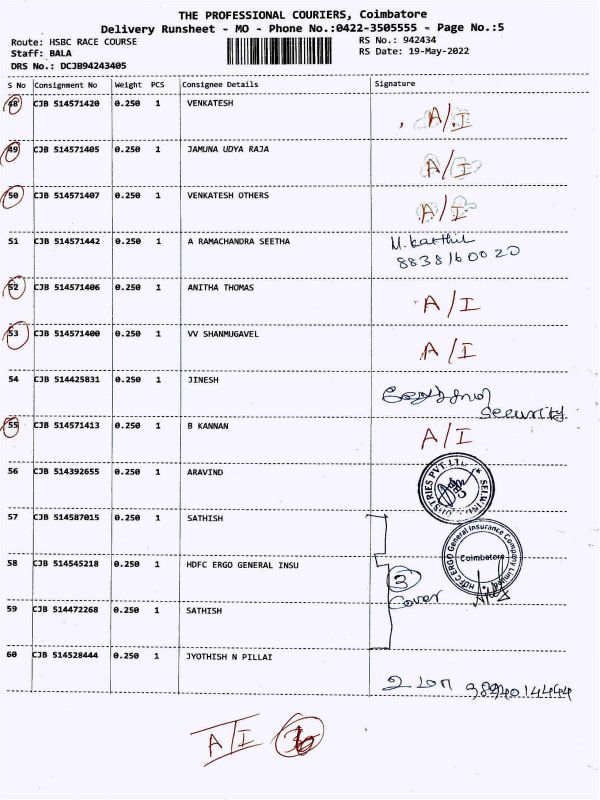 THE PROFESSIONAL COURIERS, Coimbatore
Delivery Runsheet - MO - Phone No.:0422-3505555 - Page No.:5
Route: HSBC RACE COURSE RS No.: 942434
Staff: BALA RS Date: 19-May-2022
DRS No.: DCJB94243405
S No Consignment No Weight PCS Consignee Details Signature
48 CJB 514571420 0.250 1 VENKATESH A/I
49 CJB 514571405 0.250 1 JAMUNA UDYA RAJA A/I
50 CJB 514571407 0.250 1 VENKATESH OTHERS A/I
51 CJB 514571442 0.250 1 A RAMACHANDRA SEETHA M. karthik
8838160020
52 CJB 514571406 0.250 1 ANITHA THOMAS A/I
53 CJB 514571400 0.250 1 VV SHANMUGAVEL A/I
54 CJB 514425831 0.250 1 JINESH
security
55 CJB 514571413 0.250 1 B KANNAN A/I
56 CJB 514392655 0.250 1 ARAVIND
57 CJB 514587015 0.250 1 SATHISH
58 CJB 514545218 0.250 1 HDFC ERGO GENERAL INSU 3 HDFC ERGO General Insurance Company Limited Coimbatore
Cover
59 CJB 514472268 0.250 1 SATHISH
60 CJB 514528444 0.250 1 JYOTHISH N PILLAI
A/I